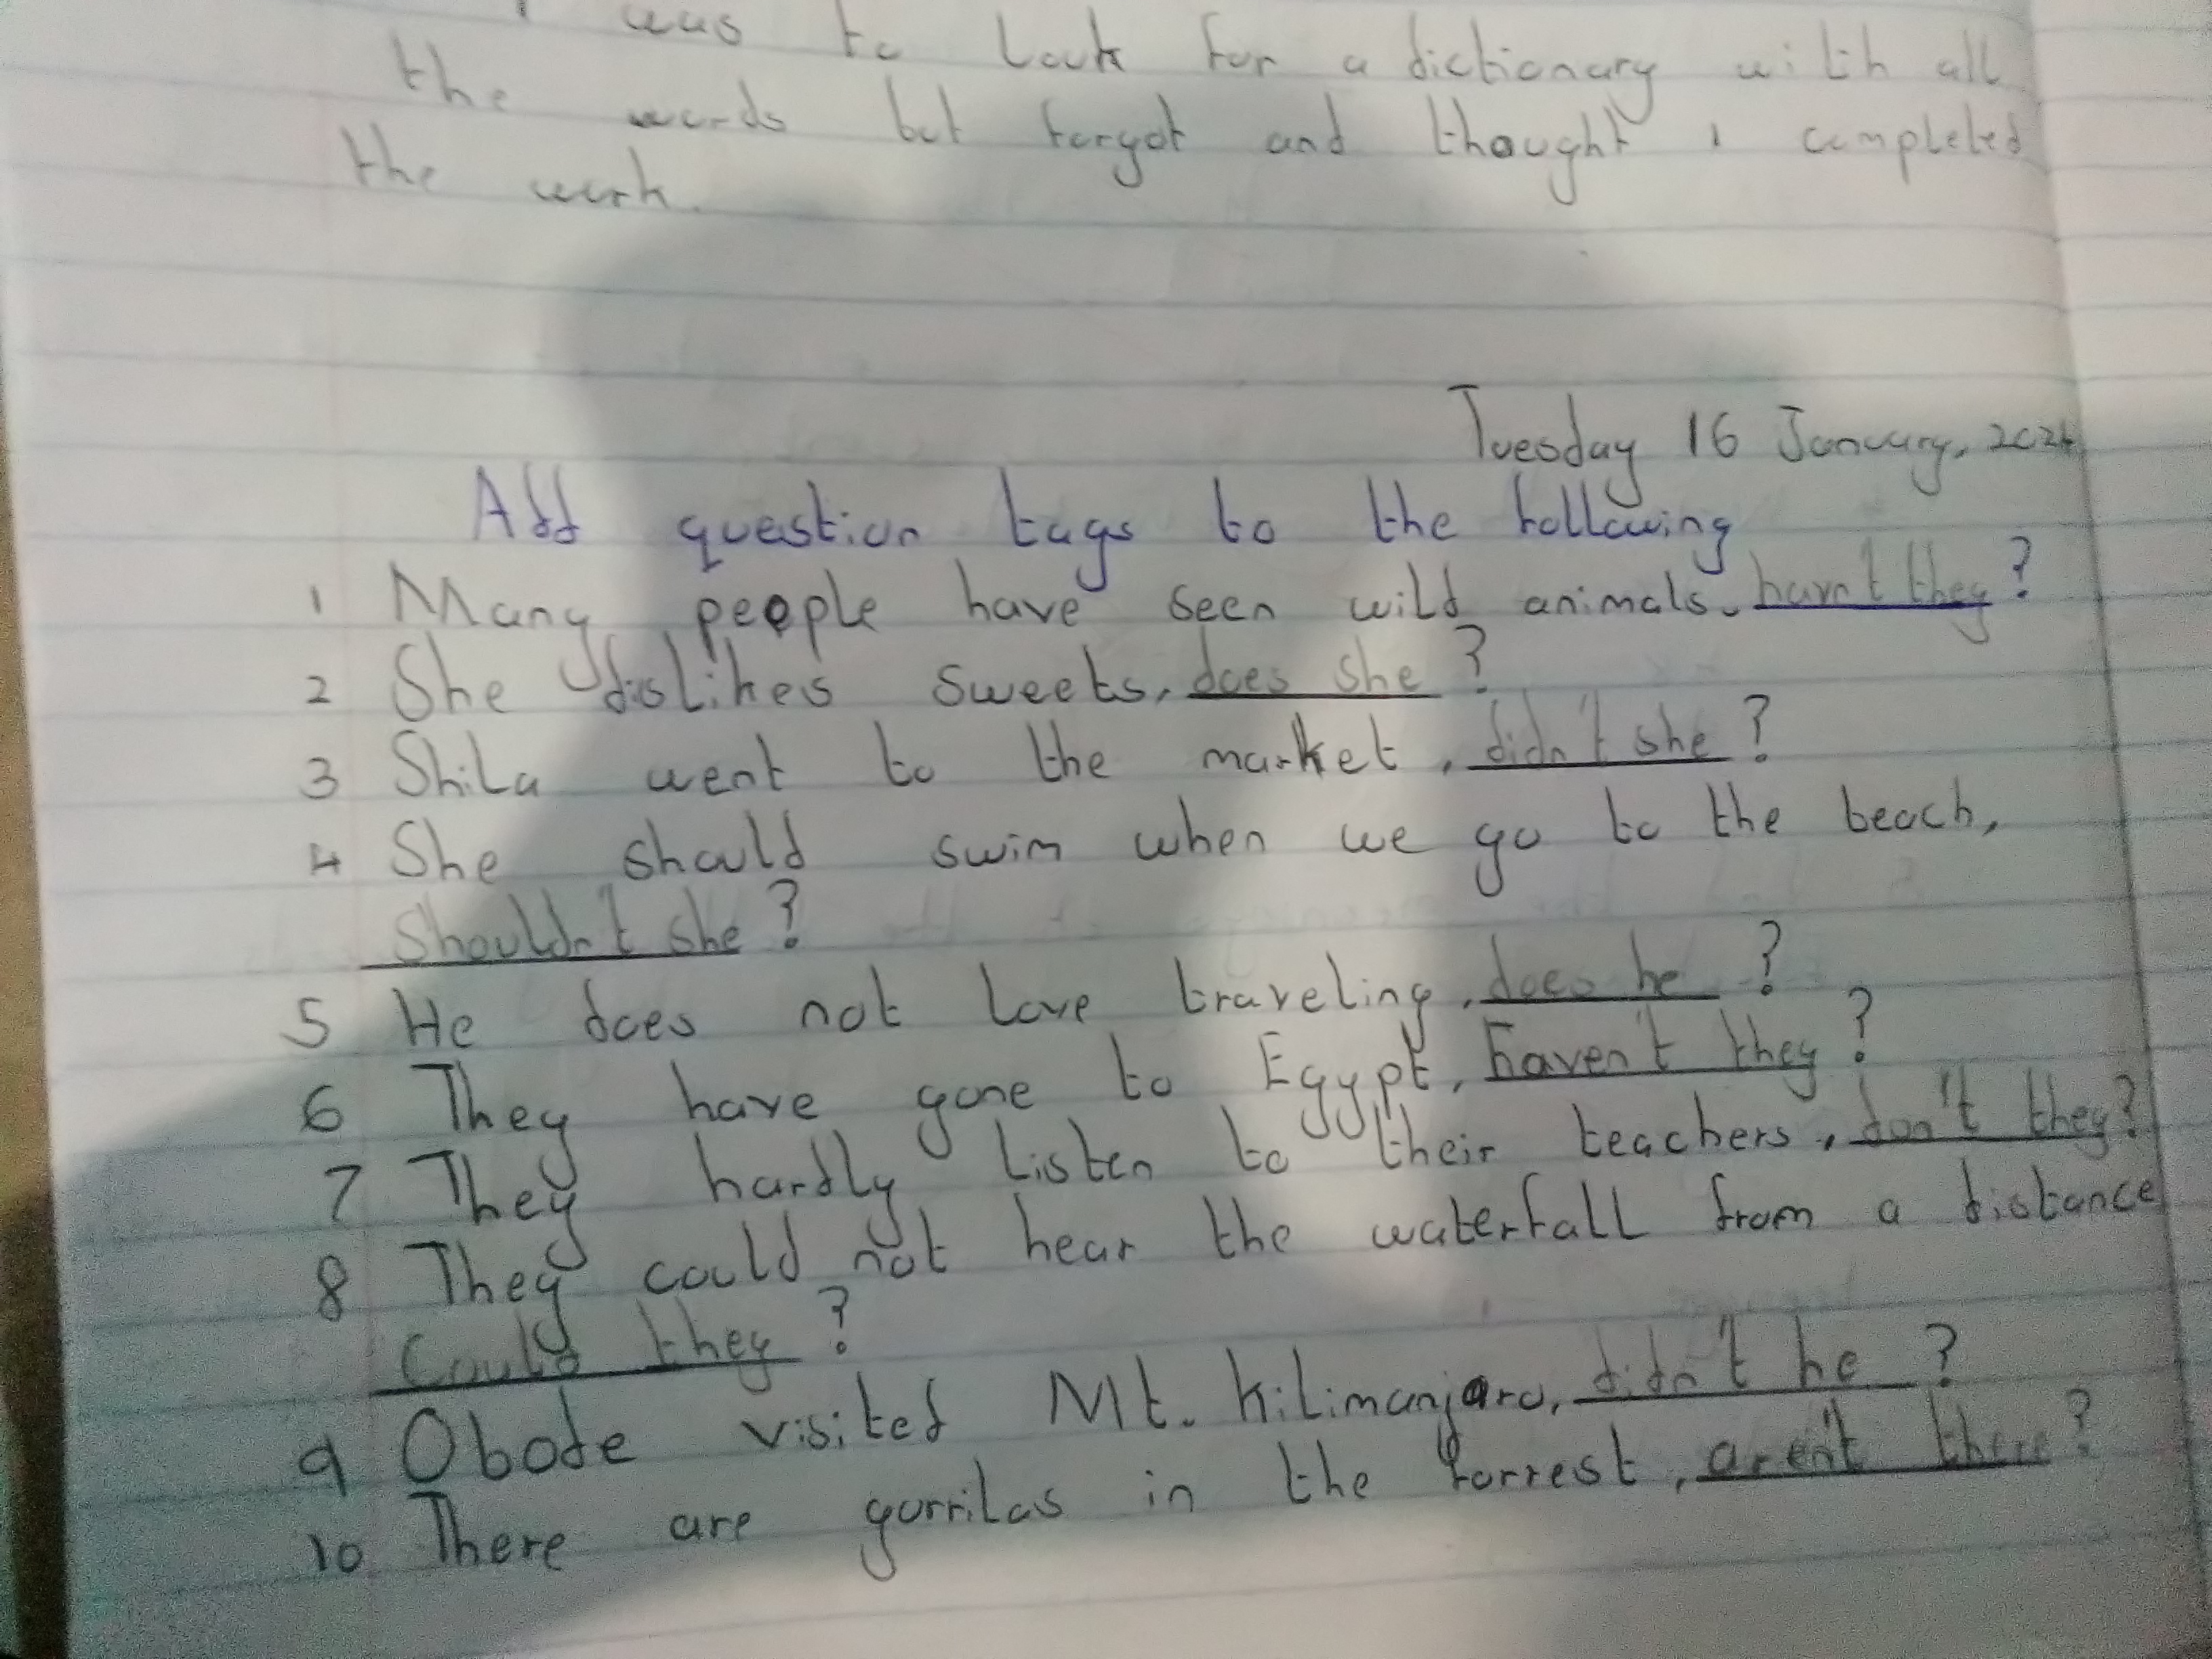 was to look for a dictionary wilth all
the words but forgot and thought I completed
the work.
Tuesday 16 January, 2024
Add question tags to the following
1 Many people have seen wild animals, havn't they?
2 She dislikes sweets, does she?
3 Shila went to the market, didn't she?
4 She should swim when we go to the beach,
Shouldn't she?
5 He does not love traveling, does he?
6 They have gone to Egypt, haven't they?
7 They hardly listen to their teachers, don't they?
8 They could not hear the waterfall from a distance
Could they?
9 Obode visited Mt. Kilimanjaro, didn't he?
10 There are gorrilas in the forrest, aren't there?